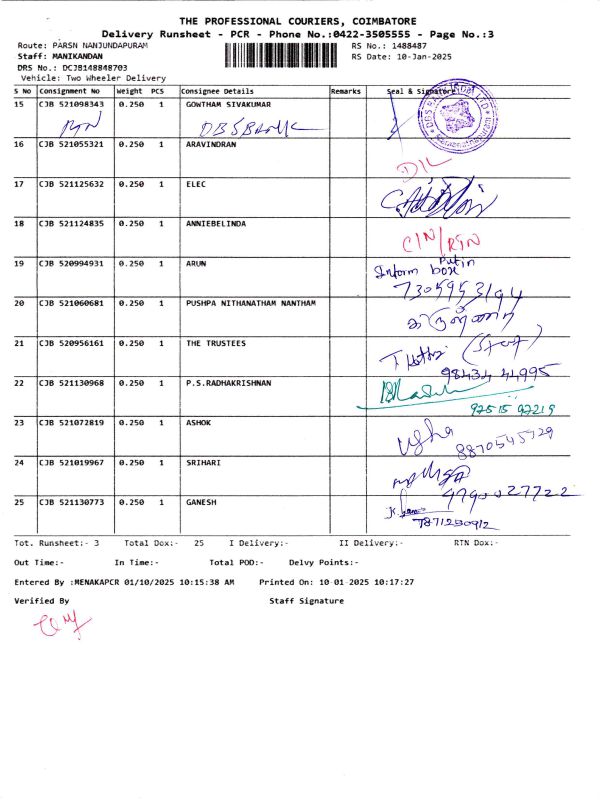 THE PROFESSIONAL COURIERS, COIMBATORE
Delivery Runsheet - PCR - Phone No.:0422-3505555 - Page No.:3
Route: PARSN NANJUNDAPURAM RS No.: 1488487
Staff: MANIKANDAN RS Date: 10-Jan-2025
DRS No.: DCJB148848703
Vehicle: Two Wheeler Delivery
S No Consignment No Weight PCS Consignee Details Remarks Seal & Signature
15 CJB 521098343 0.250 1 GOWTHAM SIVAKUMAR
RTN DBS BANK
16 CJB 521055321 0.250 1 ARAVINDRAN
D/L
17 CJB 521125632 0.250 1 ELEC
18 CJB 521124835 0.250 1 ANNIEBELINDA
C/N/RTN
19 CJB 520994931 0.250 1 ARUN
Putin
Inform box
7305953194
20 CJB 521060681 0.250 1 PUSHPA NITHANATHAM NANTHAM
21 CJB 520956161 0.250 1 THE TRUSTEES
(Staff)
98434 41995
22 CJB 521130968 0.250 1 P.S.RADHAKRISHNAN
97515 97219
23 CJB 521072819 0.250 1 ASHOK
usha
8870545729
24 CJB 521019967 0.250 1 SRIHARI
4790027722
25 CJB 521130773 0.250 1 GANESH
7871250912
Tot. Runsheet:- 3 Total Dox:- 25 I Delivery:- II Delivery:- RTN Dox:-
Out Time:- In Time:- Total POD:- Delvy Points:-
Entered By :MENAKAPCR 01/10/2025 10:15:38 AM Printed On: 10-01-2025 10:17:27
Verified By Staff Signature